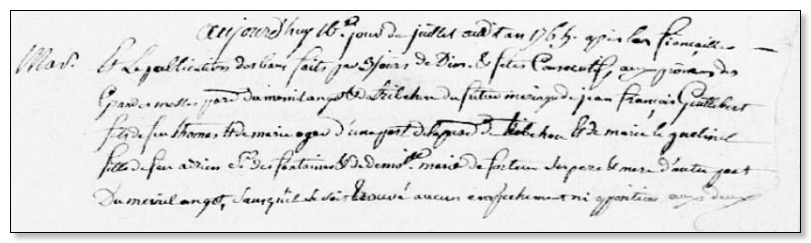 aujourd'huy 16e jour de juillet audit an 1765. après les fiançailles
Mar. Et La publication des bans faits par 3 jours de Dim. & fêtes Consecutifs, aux prones des
Grandes messes par. du mesnil angot & de tribehou du futur mariage de jean françois Guillebert
fils de feu thomas & de marie oger d'une part de la par. de tribehou Et de marie le guelinel
fille de feu adrien Sr. des fontaines & de demoille marie de ses pere & mere d'autre part
Du mesnil angot, sans qu'il se soit trouvé aucun empeschement ni opposition aux deux